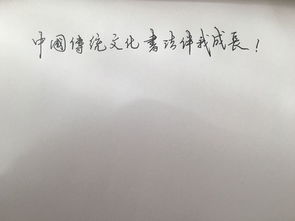 中國傳统文化書法伴我成長！